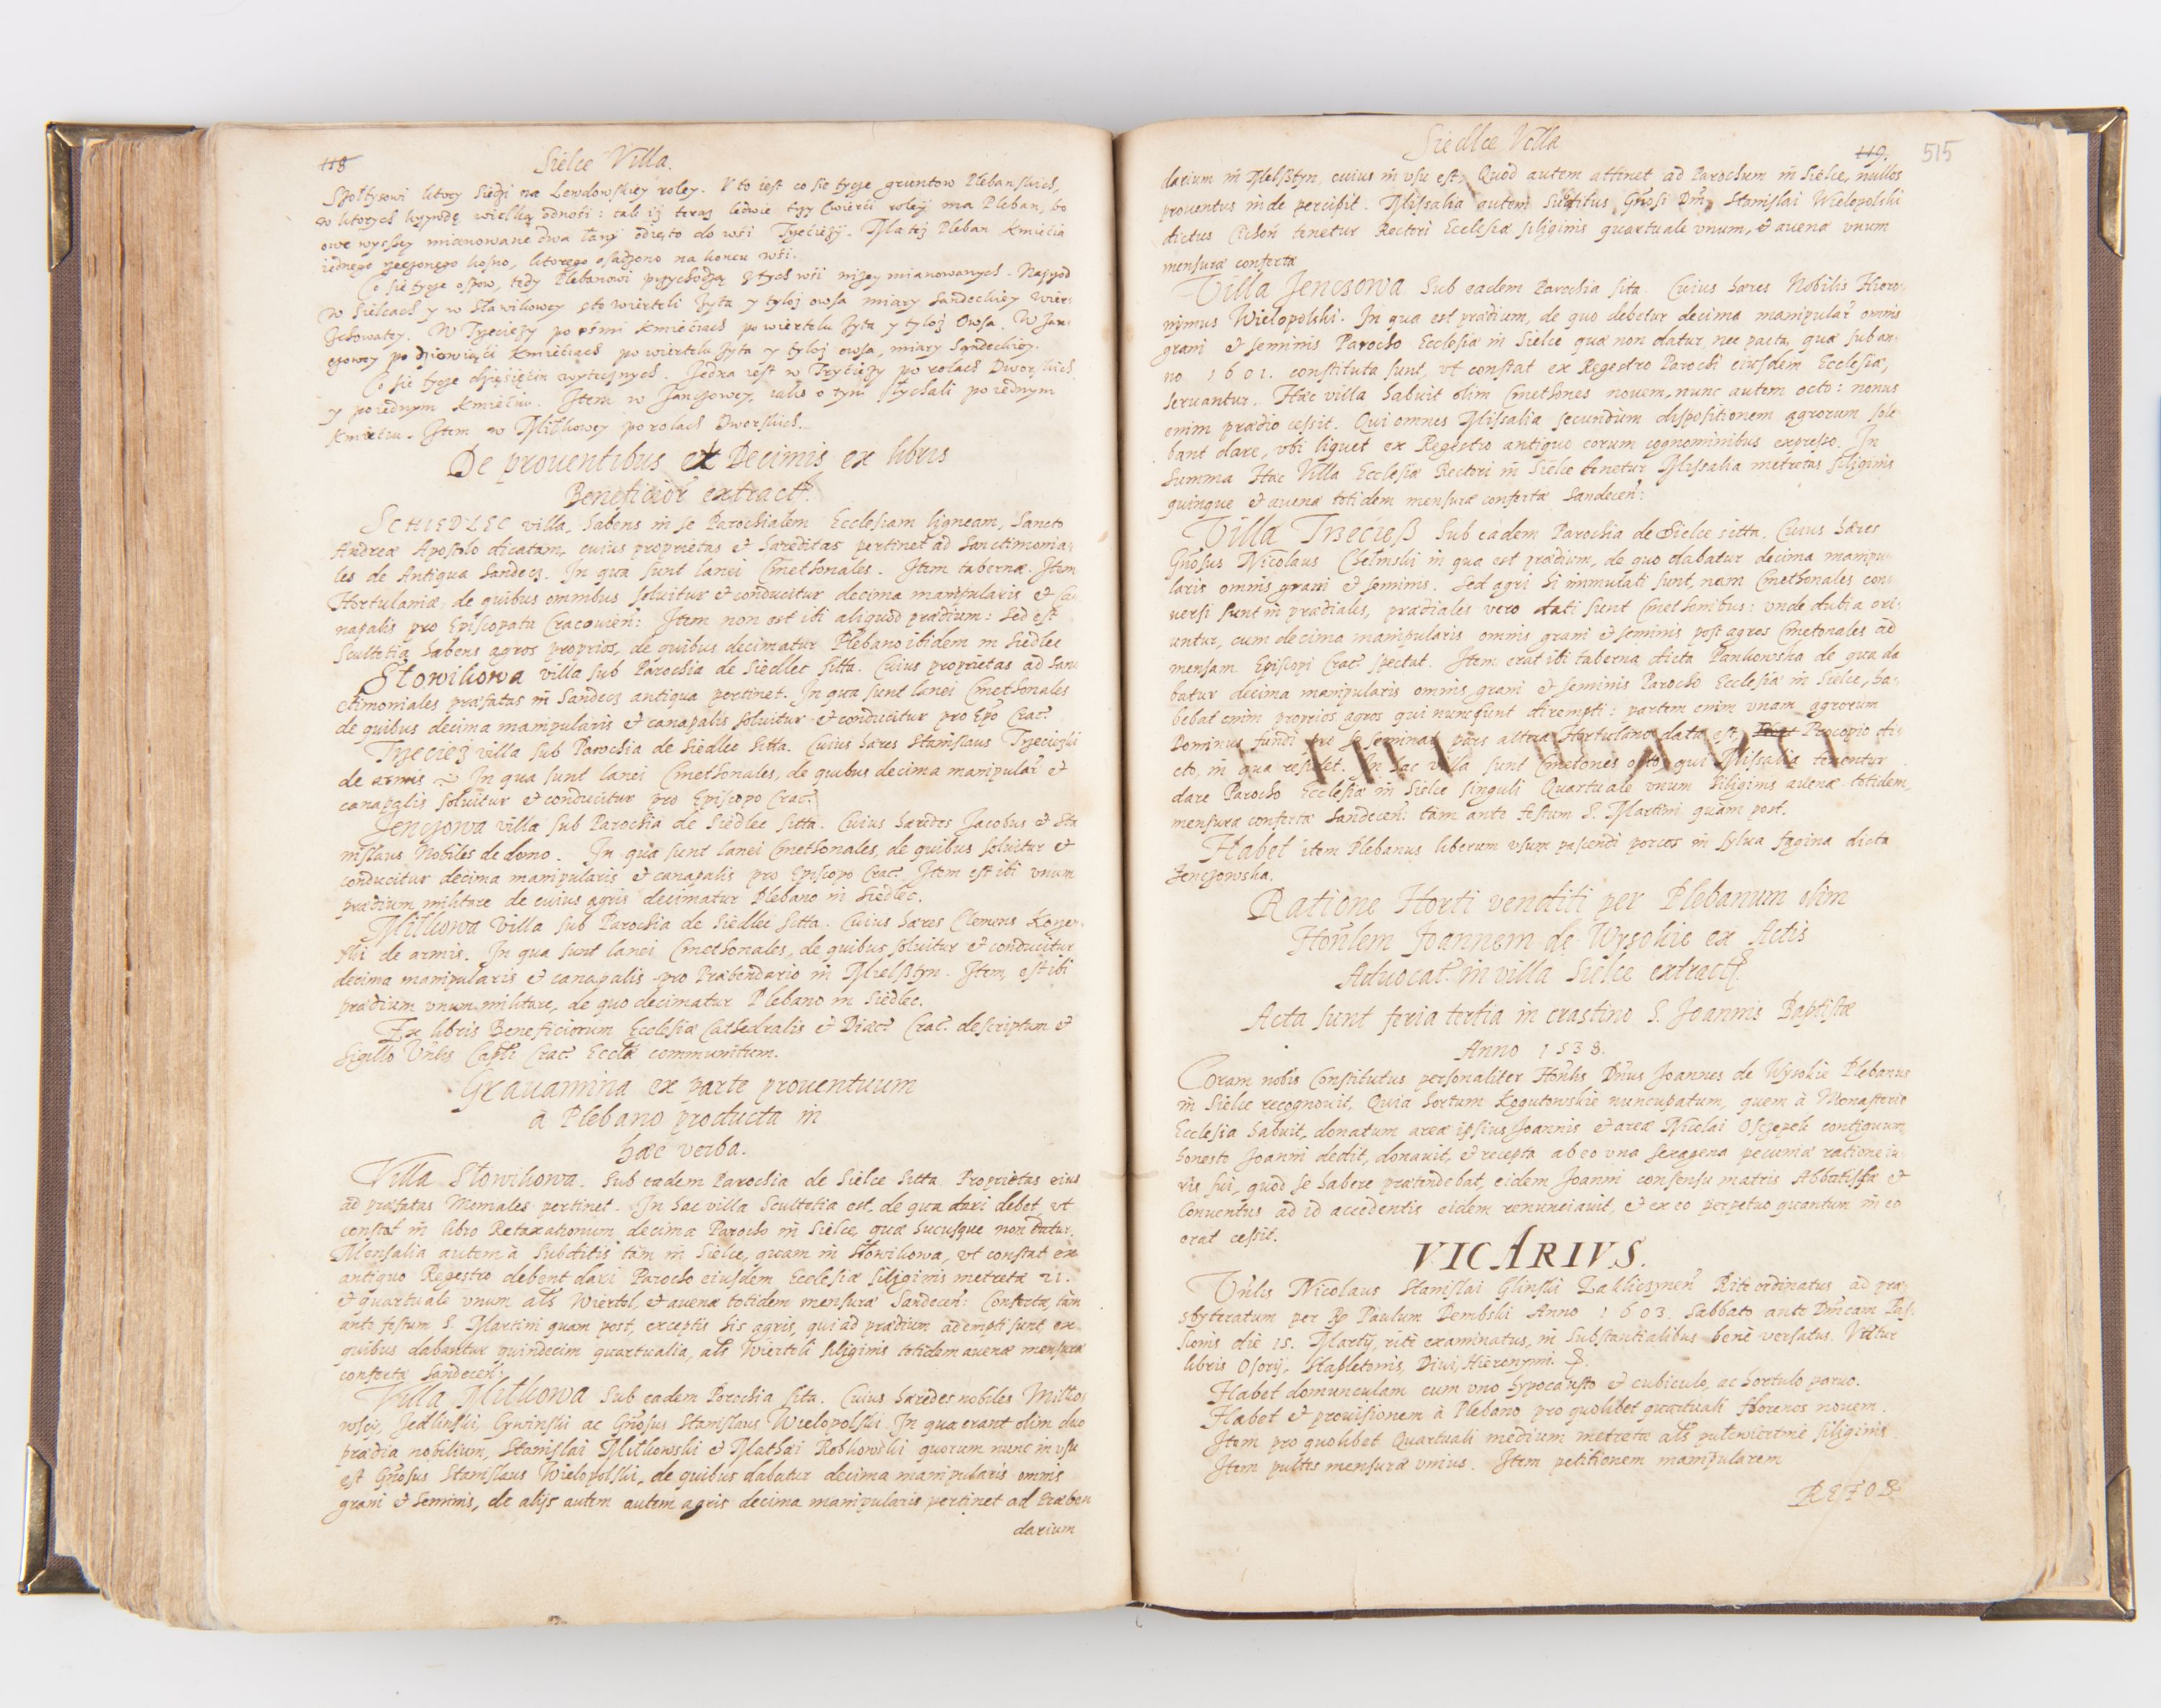 118
Sielce Villa.
Szołtysowi ktory siedzi na Lewdowskiey roley. V to iest co sie tycze gruntow Plebanskich,
w ktorych krzywdę wielką odnosi: tak iż teraz ledwie trzy Cwierci roley ma Pleban, bo
owe wyszszey mianowane dwa łany odięto do wsi Trzecieży. Ma też Pleban Kmiecia
iednego rzeczonego kosno, ktorego osadzono na koncu wsi.
Co sie tycze ospow, tedy Plebanowi przychodzą z tych wsi niżey mianowanych. Naprzod
w Sielcach y w Stawikowey sto wierteli żyta y tyloż owsa miary Sandeckiey wier
zchowatey. W Trzecieży po ośmi Kmieciach po wiertelu żyta y tyloż Owsa. W Jan
czowey po dziewiąci Kmieciach po wiertelu żyta y tyloż owsa, miary Sądeckiey.
Co sie tycze dziesięcin wytycznych. Jedna iest w Trzycieży po rolach Dworskich
y po iednym Kmieciu. Item w Janczowey, iako o tym słychali po iednym
Kmieciu. Item w Miłkowey po rolach Dworskich.
De prouentibus et Decimis ex libris
Beneficior extract:
SCHIEDLEC villa, habens in se Parochialem Ecclesiam ligneam, Sancto
Andreæ Apostolo dicatam, cuius proprietas & hæreditas pertinet ad Sanctimonia
les de Antiqua Sandecz. In qua sunt lanei Cmethonales. Item tabernæ. Item
Hortulaniæ, de quibus omnibus soluitur & conducitur decima manipularis & ca
napalis pro Episcopatu Cracouien: Item non est ibi aliquod prædium: Sed est
Scultetia habens agros proprios, de quibus decimatur Plebano ibidem in Siedlec
Stowikowa villa sub Parochia de Siedlec sitta. Cuius proprietas ad San
ctimoniales præfatas in Sandecz antiqua pertinet. In qua sunt lanei Cmethonales
de quibus decima manipularis & canapalis soluitur & conducitur pro Epo Crac:
Trzeciez villa sub Parochia de Siedlec sitta. Cuius hæres Stanislaus Trzecieski
de armis In qua sunt lanei Cmethonales, de quibus decima manipular &
canapalis soluitur & conducitur pro Episcopo Crac:
Jenczowa villa sub Parochia de Siedlec sitta. Cuius hæredes Jacobus & Sta
nislaus Nobiles de domo. In qua sunt lanei Cmethonales, de quibus soluitur &
conducitur decima manipularis & canapalis pro Episcopo Crac: Item est ibi vnum
prædium militare de cuius agris decimatur Plebano in Siedlec.
Miłkowa Villa sub Parochia de Siedlec sitta. Cuius hæres Clemens
ski de armis. In qua sunt lanei Cmethonales, de quibus soluitur & conducitur
decima manipularis & canapalis pro Præbendario in Mielsztyn. Item, est ibi
prædium vnum militare, de quo decimatur Plebano in Siedlec.
Ex libris Beneficiorum Ecclesiæ Cathedralis & Diæc: Crac: descriptum &
Sigillo Vnlis Capti Crac: Ecclæ communitum.
Grauamina ex parte prouentuum
à Plebano producta in
hæc verba.
Villa Stowikowa. Sub eadem Parochia de Sielce sitta Proprietas eius
ad præfatas Moniales pertinet. In hac villa Scultetia est, de qua dari debet, vt
constat in libro Retaxationum decima Parocho in Sielce, quæ hucusque non datur.
Mensalia autem à Subditis tàm in Sielce, quam in Stowikowa, vt constat ex
antiquo Regestro debent dari Parocho eiusdem Ecclesiæ siliginis metretæ 21.
& quartuale vnum als Wiertel, & auenæ totidem mensuræ Sandecen: Conferta, tàm
ante festum S. Martini quam post, exceptis his agris, qui ad prædium adempti sunt ex
quibus dabantur quindecim quartualia, als Wierteli siliginis totidem auenæ mensuræ
conferta Sandecen:
Villa Miłkowa Sub eadem Parochia sita. Cuius hæredes nobiles Miłko
wscy, Jedlinski, Gywinski ac Gnosus Stanislaus Wielopolski. In qua erant olim duo
prædia nobilium, Stanislai Miłkowski & Mathæi Robkowski quorum nunc in vsu
est Gnosus Stanislaus Wielopolski, de quibus dabatur decima manipularis omnis
grani & seminis, de alijs autem autem agris decima manipularis pertinet ad Præben
darium
Siedlce Villa
119.
515
darium in Mielsztyn, cuius in vsu est. Quod autem attinet ad Parochum in Sielce, nullos
prouentus inde percipit. Missalia autem Subditus Gnosi Dni Stanislai Wielopolski
dictus Cichoń tenetur Rectori Ecclesiæ siliginis quartuale vnum, & auenæ vnum
mensuræ conferta
Villa Jenczowa Sub eadem Parochia sita. Cuius hæres Nobilis Hiero
nymus Wielopolski. In qua est prædium, de quo debetur decima manipular omnis
grani & seminis Parocho Ecclesiæ in Sielce quæ non datur, nec pacta, quæ sub an
no 1601. constituta sunt, vt constat ex Regestro Parochi eiusdem Ecclesiæ,
seruantur. Hæc villa habuit olim Cmethones nouem, nunc autem octo: nonus
enim prædio cessit. Qui omnes Missalia secundùm dispositionem agrorum sole
bant dare, vbi liquet ex Regestro antiquo eorum cognominibus expresso. In
Summa Hæc Villa Ecclesiæ Rectori in Sielce tenetur Missalia metretas siliginis
quinque & auenæ totidem mensuræ conferta Sandecen:
Villa Trzecieß Sub eadem Parochia de Sielce sitta. Cuius hæres
Gnosus Nicolaus Chełmski in qua est prædium, de quo dabatur decima manipu
laris omnis grani & seminis. Sed agri hi immutati sunt, nam Cmethonales con
uersi sunt in prædiales, prædiales vero dati sunt Cmethonibus: vnde dubia ori
untur, cum decima manipularis omnis grani & seminis post agros Cmetonales ad
mensam Episcopi Crac: spectat. Item erat ibi taberna dicta Pankowska de qua da
batur decima manipularis omnis grani & seminis Parocho Ecclesiæ in Sielce, ha
bebat enim proprios agros qui nunc sunt dirempti: partem enim vnam agrorum
Dominus fundi pro se seminat pars altera Hortulano data est Procopio di
cto, in qua residet. In hac villa sunt Cmetones octo, qui Missalia tenentur
dare Parocho Ecclesiæ in Sielce singuli Quartuale vnum siliginis auenæ totidem,
mensuræ conferta Sandecen: tàm ante festum S. Martini quàm post.
Habet item Plebanus liberum vsum pascendi porcos in sylua fagina dicta
Jenczowska.
Ratione Horti venditi per Plebanum olim
Honlem Joannem de Wysokie ex Actis
Aduocat: in villa Sielce extract
Acta sunt feria tertia in crastino S. Joannis Baptistæ
Anno 1538.
Coram nobis Constitutus personaliter Honlis Dnus Joannes de Wysokie Plebanus
in Sielce recognouit, Quia hortum Kogutowskie nuncupatum, quem à Monasterio
Ecclesia habuit, donatum areæ ipsius Joannis & areæ Nicolai Oszczepek contiguum
honesto Joanni dedit, donauit, & recepta ab eo vna sexagena pecuniæ ratione iu
ris sui, quod se habere prætendebat, eidem Joanni consensu matris Abbatissæ &
Conuentus ad id accedentis eidem renunciauit, & ex eo perpetuo quantum in eo
erat cessit.
VICARIVS.
Vnlis Nicolaus Stanislai Glinski Zakliczynen Ritè ordinatus ad præ
sbyteratum per Paulum Dembski Anno 1603. Sabbato ante Dnicam Pas
sionis die 15. Martij, ritè examinatus, in Substantialibus benè versatus. Vtitur
libris Osorij, Stapletonis, Diui Hieronymi.
Habet domunculam cum vno hypocausto & cubiculo, ac hortulo paruo.
Habet & prouisionem à Plebano pro quolibet quartuali florenos nouem.
Item pro quolibet Quartuali medium metretæ als siliginis
Item pultes mensuræ vnius. Item petitionem manipularem